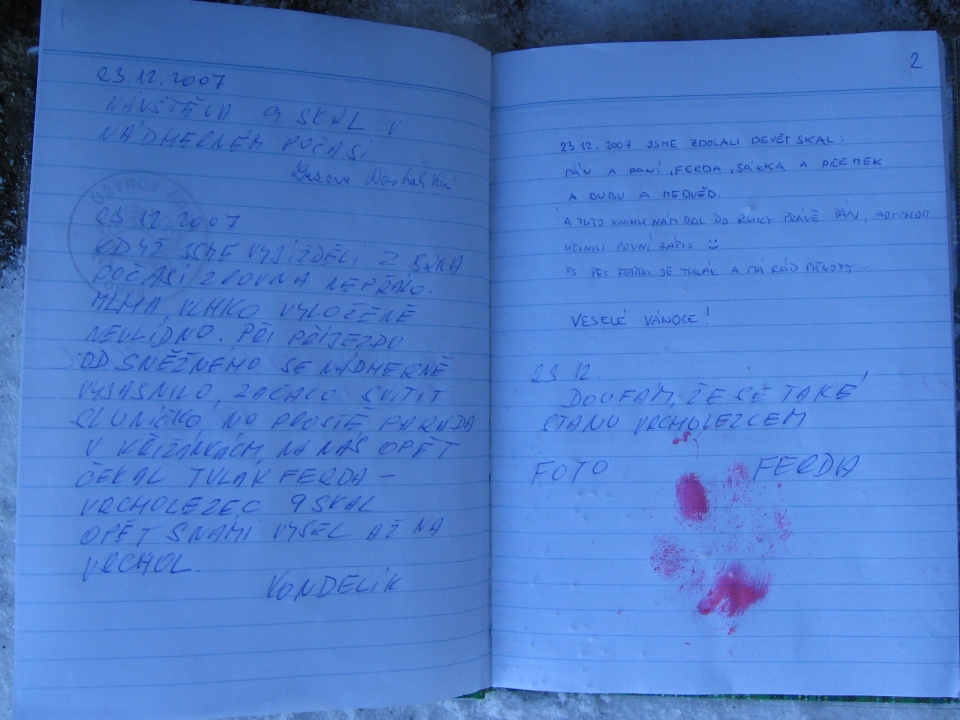 1
23.12.2007
NÁVŠTĚVA 9 SKAL V
NÁDHERNÉM POČASÍ
23.12.2007
KDYŽ JSME VYJÍŽDĚLI Z BRNA
POČASÍ ZROVNA NEPŘÁLO.
MLHA, VLHKO VYLOŽENĚ
NEVLÍDNO. PŘI PŘÍJEZDU
OD SNĚŽNÉHO SE NÁDHERNĚ
VYJASNILO, ZAČALO SVÍTIT
SLUNÍČKO, NO PROSTĚ PARÁDA
V KŘIŽÁNKÁCH NA NÁS OPĚT
ČEKAL TULÁK FERDA –
VRCHOLEZEC 9 SKAL
OPĚT S NÁMI VYŠEL AŽ NA
VRCHOL.
VONDELÍK
2
23.12.2007 JSME ZDOLALI DEVĚT SKAL:
PÁN A PANÍ, FERDA, ŠÁRKA A PŘEMEK
A DUDU A MEDVĚD.
A TUTO KNIHU NÁM DAL DO RUKY PRÁVĚ PÁN, ABYCHOM
UČINILI PRVNÍ ZÁPIS :)
PS PES FERDA JE TULÁK A MÁ RÁD
VESELÉ VÁNOCE!
23.12.
DOUFÁM, ŽE SE TAKÉ
STANU VRCHOLEZCEM
FOTO FERDA